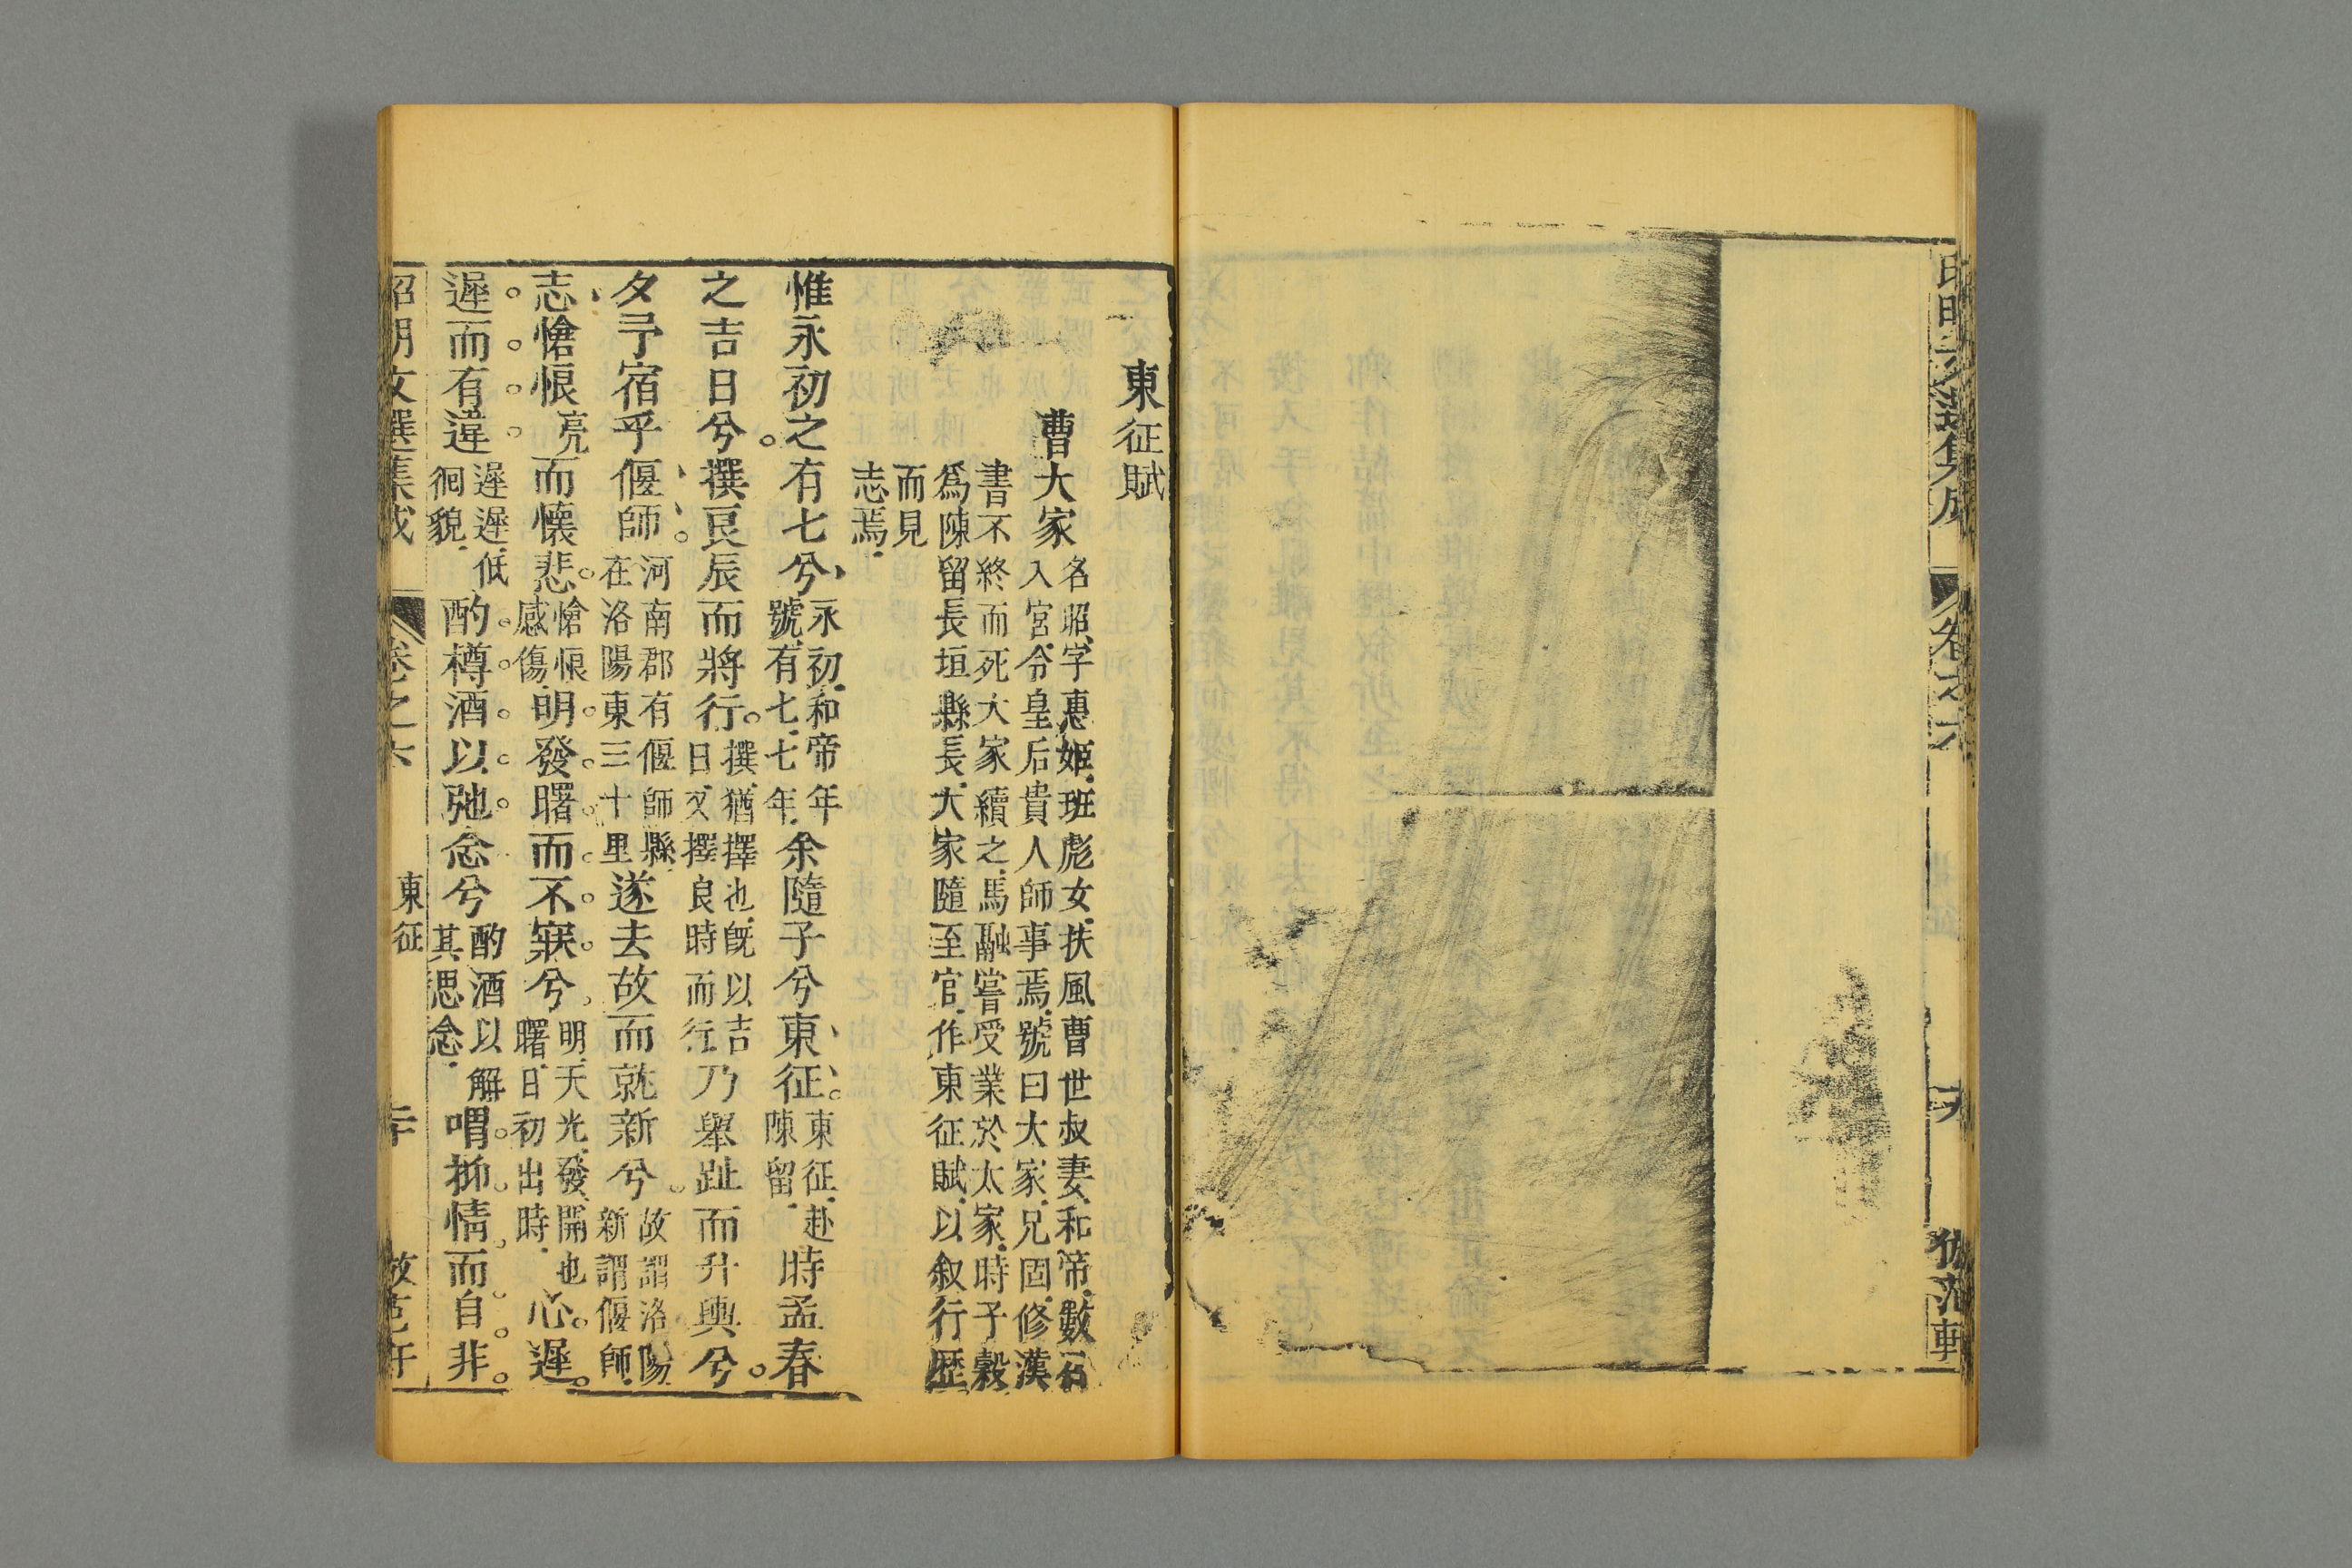 昭明文選集成
卷之六
倣范軒
東征賦
曹大家
名昭字惠姬班彪女扶風曹世叔妻和帝數召
入宮令皇后貴人師事焉號曰大家兄固修漢
書不終而死大家續之馬融嘗受業於太家時子穀
爲陳留長垣縣長大家隨至官作東征賦以叙行歷
而見
志焉
惟永初之有七兮
永初和帝年
號有七七年
余隨子兮東征
東征赴
陳留
時孟春
之吉日兮撰良辰而將行
撰猶擇也旣以吉
日又擇良時而行
乃舉趾而升輿兮
夕予宿乎偃師
河南郡有偃師縣
在洛陽東三十里
遂去故而就新兮
故謂洛陽
新謂偃師
志愴悢
亮
而懷悲
愴悢
感傷
明發曙而不寐兮
明天光發開也
曙日初出時
心遲
遲而有違
遲遲低
徊貌
酌樽酒以弛念兮
酌酒以解
其思念
喟抑情而自非
昭明文選集成
卷之六
東征
二十
倣范軒